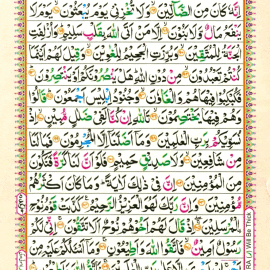 كَانَ مِنَ الضَّآلِّیْنَ ۙ وَلَا تُخْزِنِیْ یَوْمَ یُبْعَثُوْنَ ۙ یَوْمَ لَا
یَنْفَعُ مَالٌ وَّلَا بَنُوْنَ ۙ اِلَّا مَنْ اَتَى اللّٰهَ بِقَلْبٍ سَلِیْمٍ ؕ وَاُزْلِفَتِ
الْجَنَّةُ لِلْمُتَّقِیْنَ ۙ وَبُرِّزَتِ الْجَحِیْمُ لِلْغٰوِیْنَ ۙ وَقِیْلَ لَهُمْ اَیْنَمَا
كُنْتُمْ تَعْبُدُوْنَ ۙ مِنْ دُوْنِ اللّٰهِ ؕ هَلْ یَنْصُرُوْنَكُمْ اَوْ یَنْتَصِرُوْنَ ؕ
فَكُبْكِبُوْا فِیْهَا هُمْ وَالْغَاوٗنَ ۙ وَجُنُوْدُ اِبْلِیْسَ اَجْمَعُوْنَ ؕ قَالُوْا
وَهُمْ فِیْهَا یَخْتَصِمُوْنَ ۙ تَاللّٰهِ اِنْ كُنَّا لَفِیْ ضَلٰلٍ مُّبِیْنٍ ۙ اِذْ
نُسَوِّیْكُمْ بِرَبِّ الْعٰلَمِیْنَ ۙ وَمَاۤ اَضَلَّنَاۤ اِلَّا الْمُجْرِمُوْنَ ۙ فَمَا لَنَا
مِنْ شَافِعِیْنَ ۙ وَلَا صَدِیْقٍ حَمِیْمٍ ۙ فَلَوْ اَنَّ لَنَا كَرَّةً فَنَكُوْنَ
مِنَ الْمُؤْمِنِیْنَ ۙ اِنَّ فِیْ ذٰلِكَ لَاٰیَةً ؕ وَمَا كَانَ اَكْثَرُهُمْ
مُّؤْمِنِیْنَ ۙ وَاِنَّ رَبَّكَ لَهُوَ الْعَزِیْزُ الرَّحِیْمُ ۠ كَذَّبَتْ قَوْمُ نُوْحِ
الْمُرْسَلِیْنَ ۚ اِذْ قَالَ لَهُمْ اَخُوْهُمْ نُوْحٌ اَلَا تَتَّقُوْنَ ۚ اِنِّیْ لَكُمْ
رَسُوْلٌ اَمِیْنٌ ۙ فَاتَّقُوا اللّٰهَ وَاَطِیْعُوْنِ ۚ وَمَاۤ اَسْـَٔلُكُمْ عَلَیْهِ
Will Be Thick